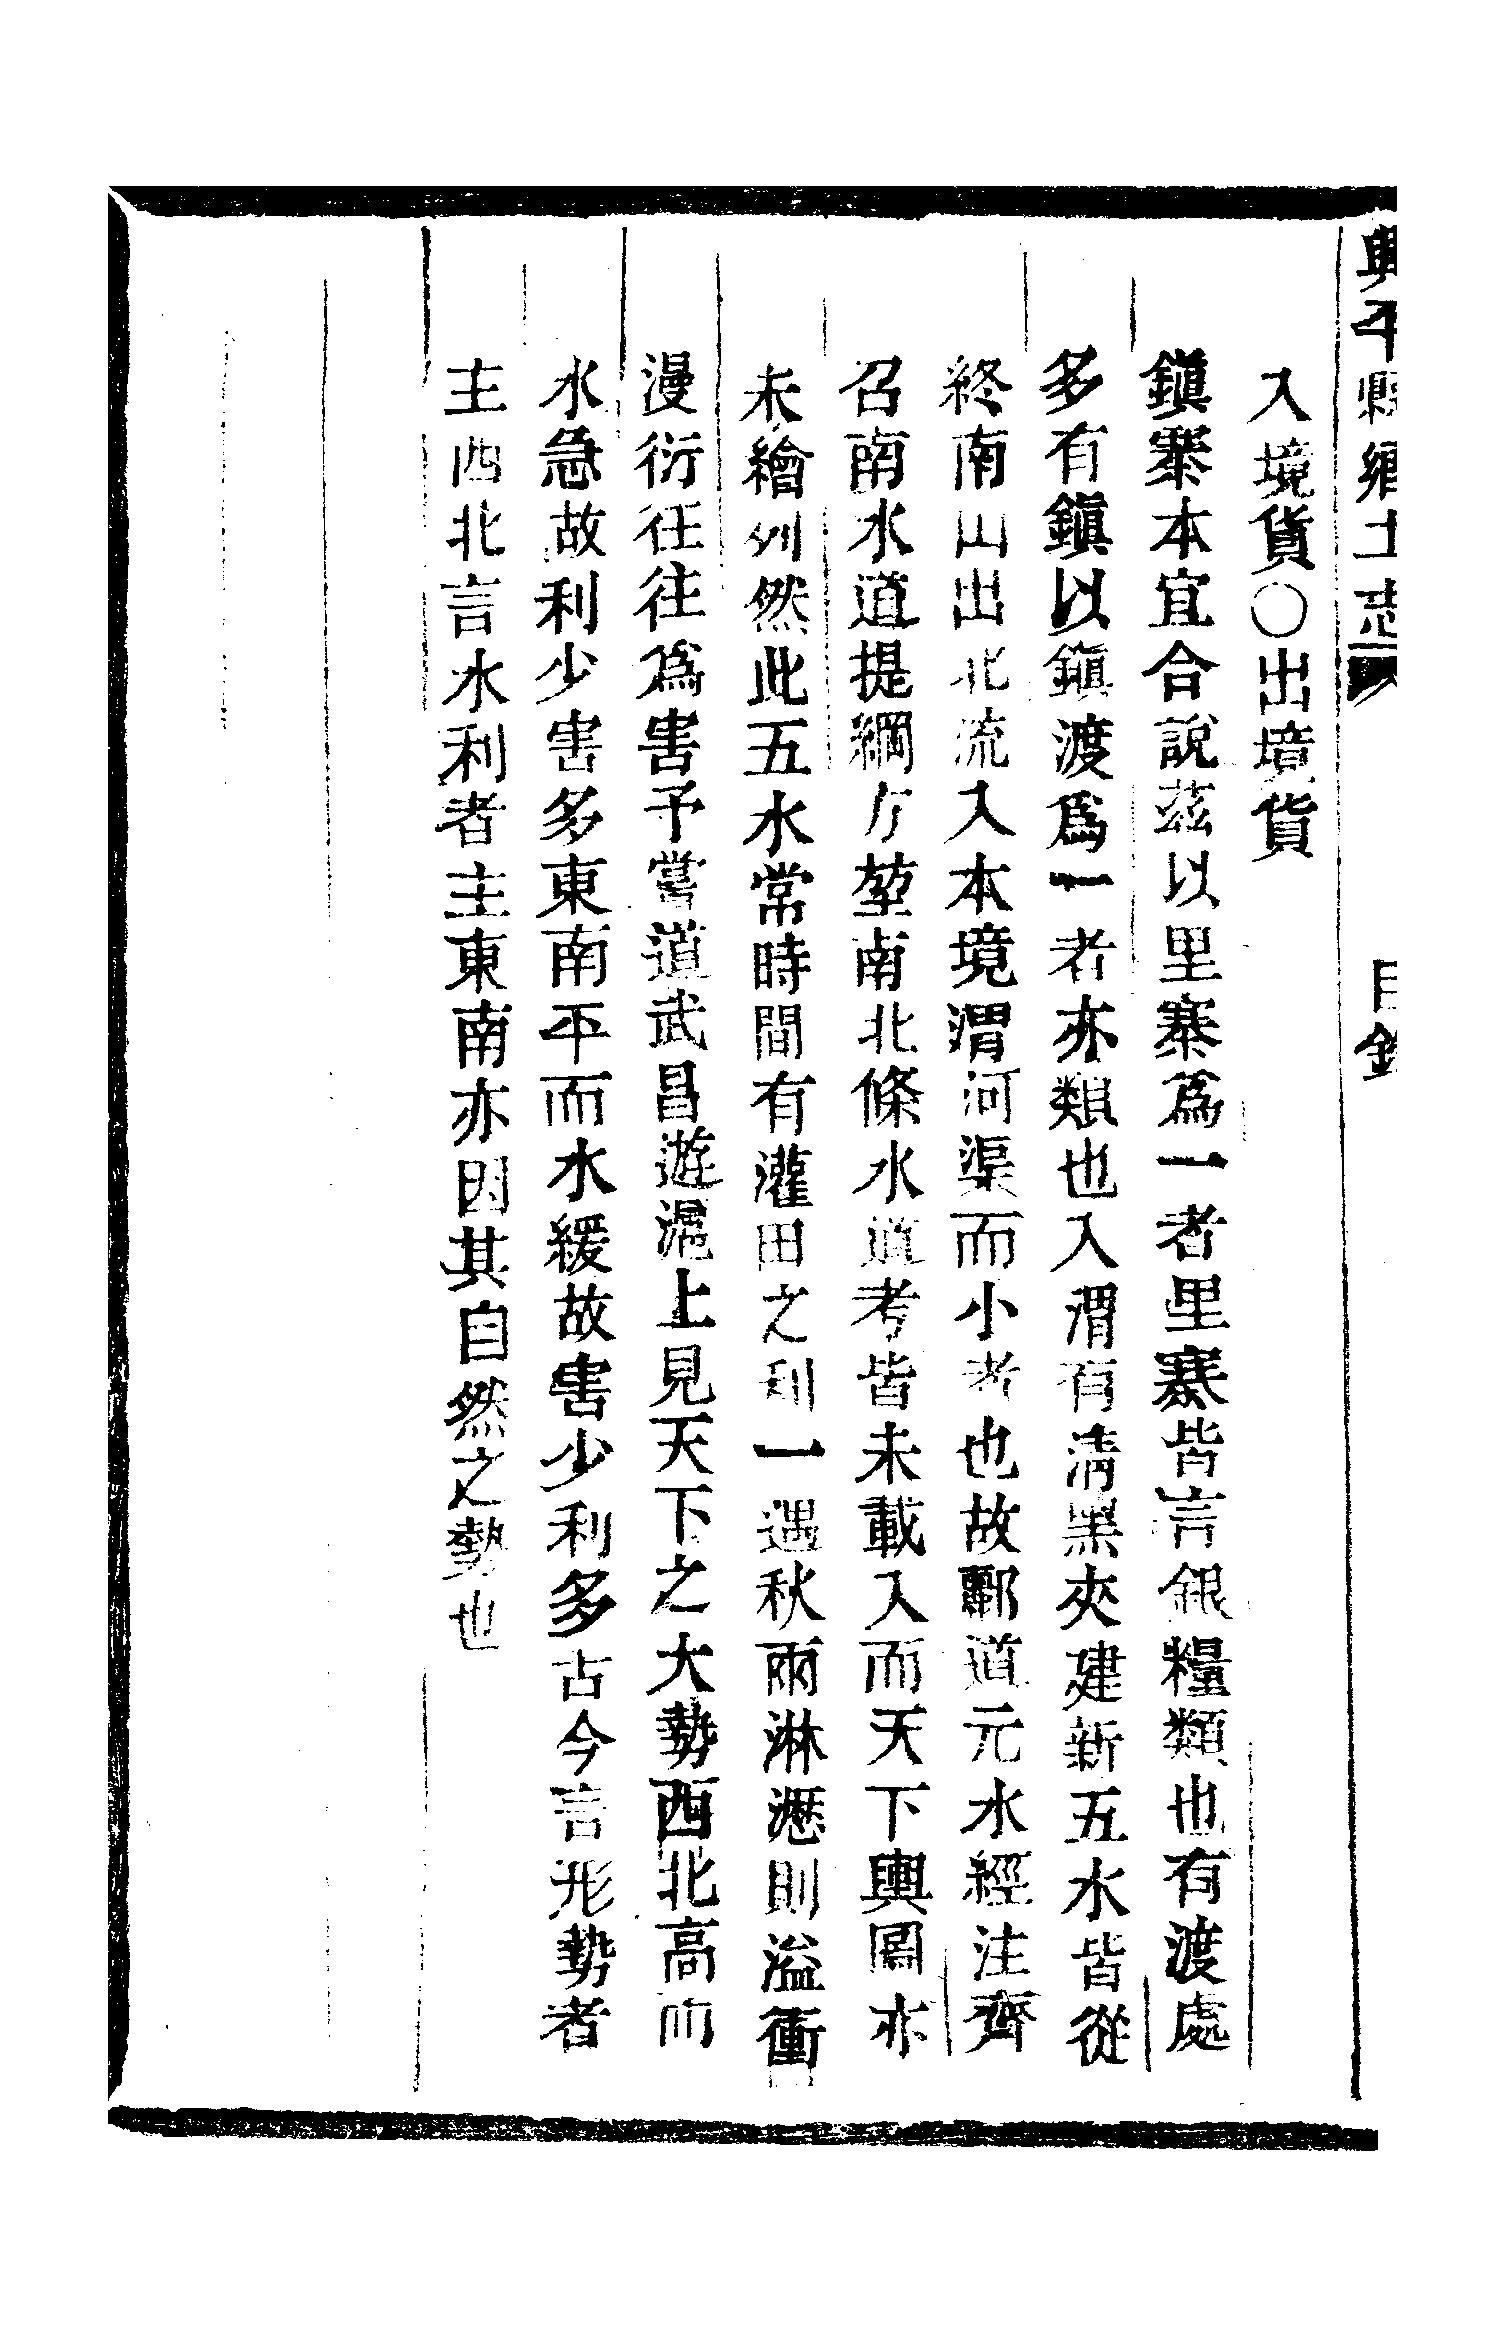 興平縣鄉土志 目錄
入境貨〇出境貨
鎮寨本宜合說茲以里寨為一者里寨皆言銀糧類也有渡處
多有鎮以鎮渡為一者亦類也入渭有清黑夾建新五水皆從
終南山出北流入本境渭河渠而小者也故酈道元水經注齊
召南水道提綱方堃南北條水道考皆未載入而天下輿圖亦
未繪列然此五水常時間有灌田之利一遇秋雨淋漚則溢衝
漫衍往往為害予嘗道武昌遊滬上見天下之大勢西北高而
水急故利少害多東南平而水緩故害少利多古今言形勢者
主西北言水利者主東南亦因其自然之勢也